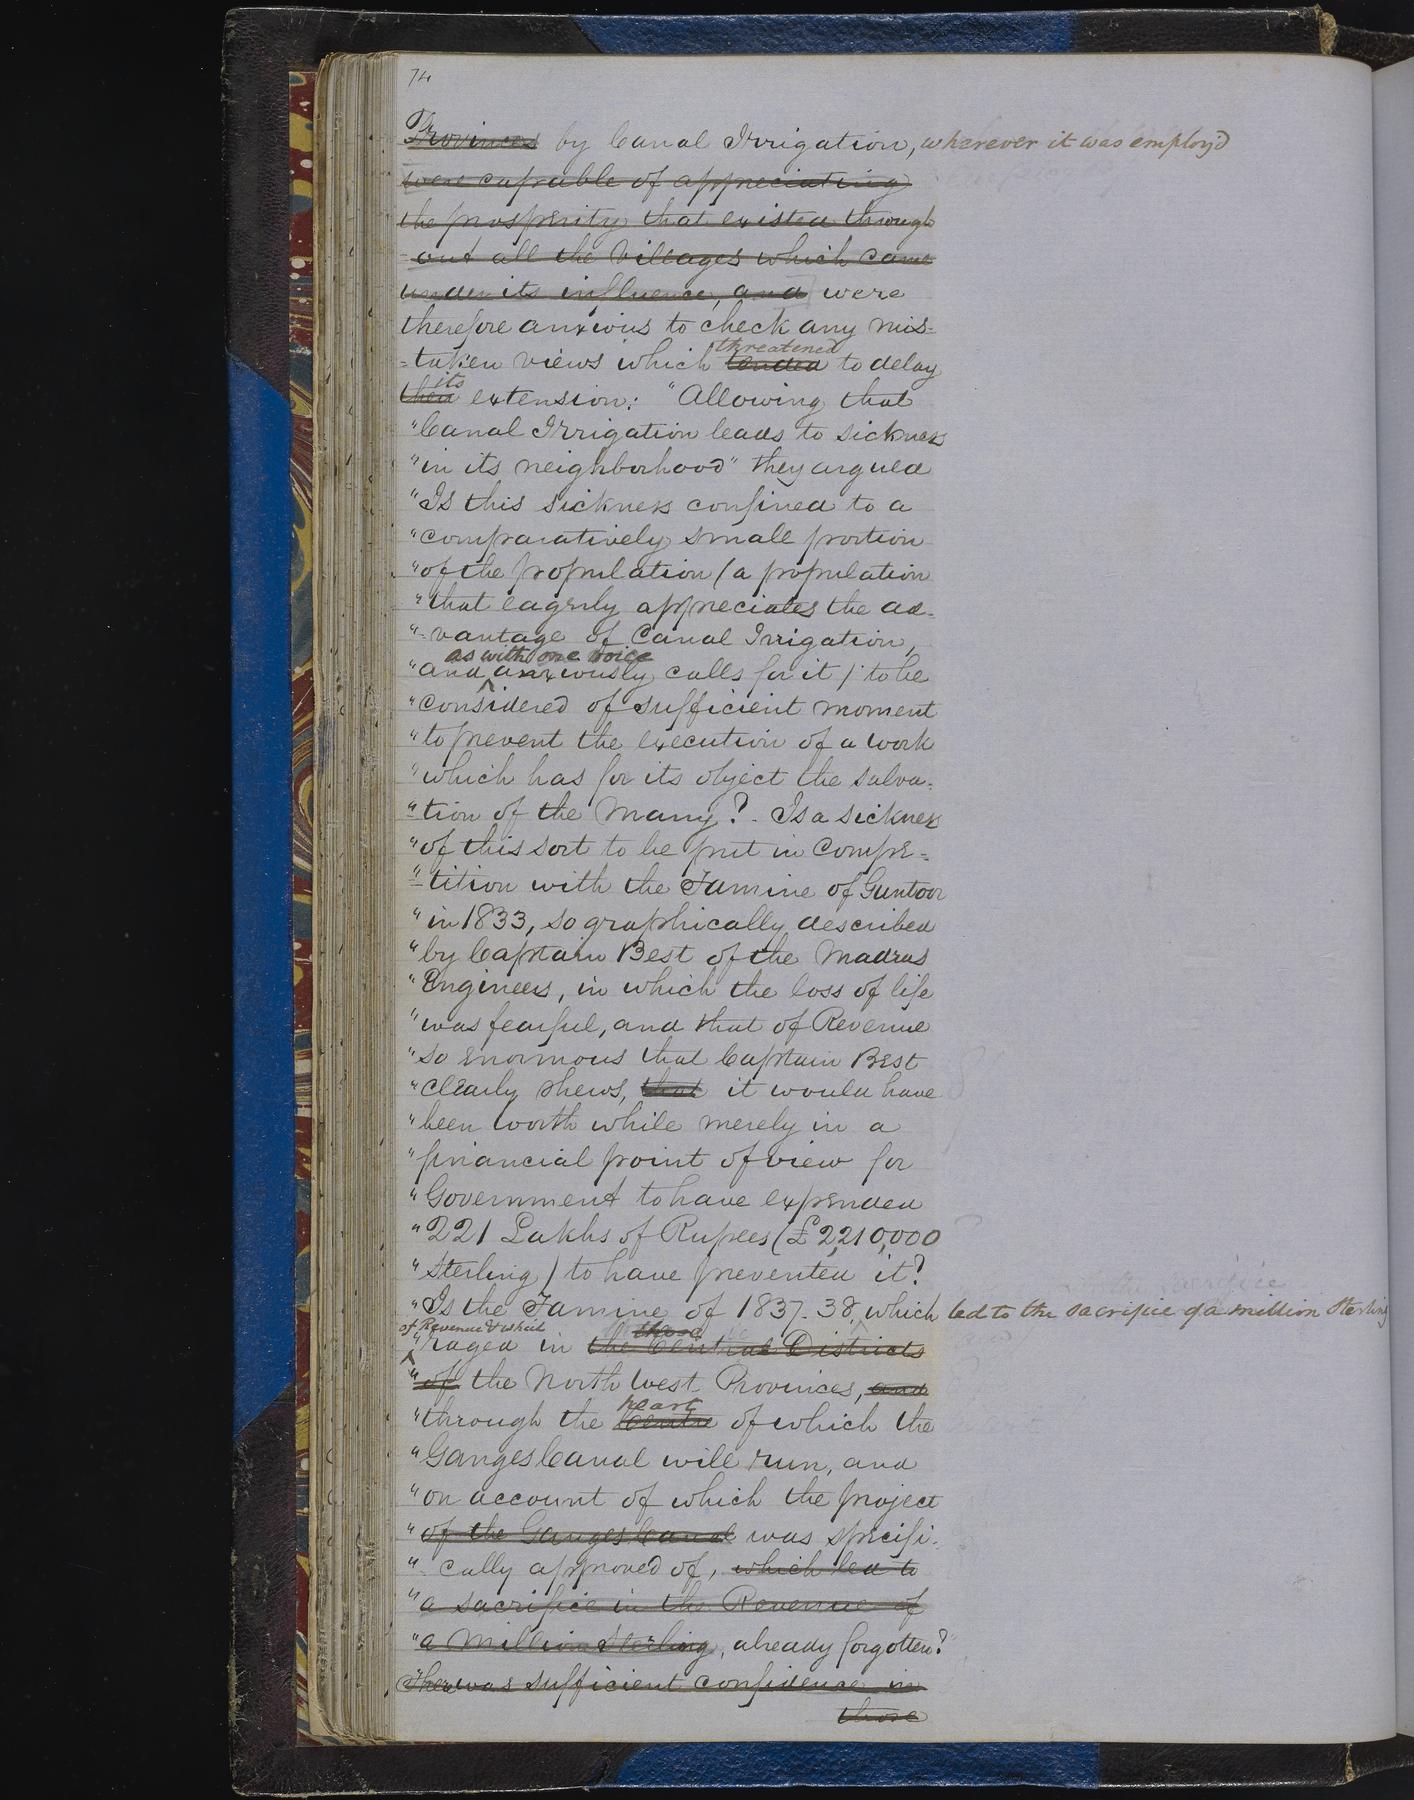 74
Provinces by Canal Irrigation, wherever it was employ'd
were capable of appreciating
the prosperity that existed through
-out all the Villages which came
under its influence, and were
therefore anxious to check any mis-
threatened
-taken views which tended to delay
its
their extension: "Allowing that
"Canal Irrigation leads to sickness
"in its neighborhood" they argued
"Is this sickness confined to a
"comparatively small portion
"of the population (a population
"that eagerly appreciates the ad-
"-vantage of Canal Irrigation,
as with one voice
"and anxiously calls for it) to be
"considered of sufficient moment
"to prevent the execution of a work
"which has for its object the salva-
"-tion of the Many? - Is a sickness
"of this sort to be put in Compe-
"-tition with the Famine of Guntoor
"in 1833, so graphically described
"by Captain Best of the Madras
"Engineers, in which the loss of life
"was fearful, and that of Revenue
"so enormous that Captain Best
"clearly shews, that it would have
"been worth while merely in a
"financial point of view for
"Government to have expended
"221 Lakhs of Rupees (£2,210,000
"Sterling) to have prevented it?
"Is the Famine of 1837-38, which led to the sacrifice of a million Sterling
of Revenue & which
"raged in the Central Districts
"of the North West Provinces, and
heart
"through the Centre of which the
"Ganges Canal will run, and
"on account of which the project
"of the Ganges Canal was specifi-
"-cally approved of, which led to
"a sacrifice in the Revenue of
"a Million Sterling, already forgotten?"
There was sufficient confidence in
those